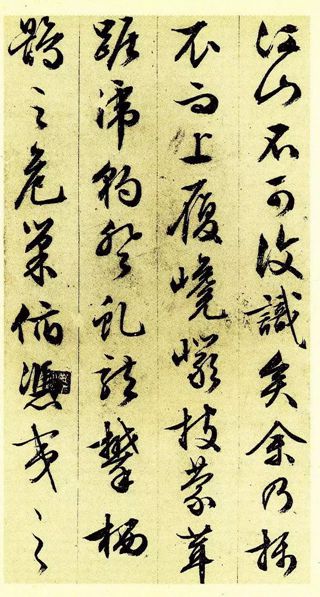 江山不可復識矣余乃攝
衣而上履巉巖披蒙茸
踞虎豹登虬龍攀栖
鶻之危巢俯馮夷之